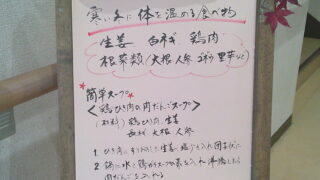 寒い冬に体を温める食べ物
生姜 白ネギ 鶏肉
根菜類(大根 人参 ゴボウ 里芋など)
簡単スープ
<鶏ひき肉の肉だんごスープ>
(材料) 鶏ひき肉 生姜
長ネギ 大根 人参
1 ひき肉にすりおろした生姜 塩少々入れ団子状に
2 鍋に水と鶏がらスープの素を入れ 沸騰したら
肉だんごを入れる